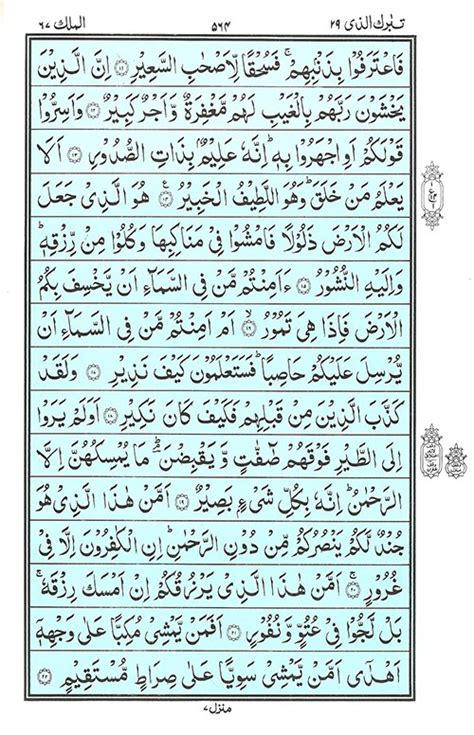 تبٰرك الذی ٢٩ ٥٦٤ الملك ٦٧
فَاعْتَرَفُوْا بِذَنْۢبِهِمْ ۚ فَسُحْقًا لِّاَصْحٰبِ السَّعِيْرِ ۝١١ اِنَّ الَّذِيْنَ
يَخْشَوْنَ رَبَّهُمْ بِالْغَيْبِ لَهُمْ مَّغْفِرَةٌ وَّاَجْرٌ كَبِيْرٌ ۝١٢ وَاَسِرُّوْا
قَوْلَكُمْ اَوِ اجْهَرُوْا بِهٖ ؕ اِنَّهٗ عَلِيْمٌۢ بِذَاتِ الصُّدُوْرِ ۝١٣ اَلَا
يَعْلَمُ مَنْ خَلَقَ ؕ وَهُوَ اللَّطِيْفُ الْخَبِيْرُ ۝١٤ هُوَ الَّذِیْ جَعَلَ
لَكُمُ الْاَرْضَ ذَلُوْلًا فَامْشُوْا فِیْ مَنَاكِبِهَا وَكُلُوْا مِنْ رِّزْقِهٖ ؕ
وَاِلَيْهِ النُّشُوْرُ ۝١٥ ءَاَمِنْتُمْ مَّنْ فِی السَّمَآءِ اَنْ يَّخْسِفَ بِكُمُ
الْاَرْضَ فَاِذَا هِیَ تَمُوْرُ ۝١٦ اَمْ اَمِنْتُمْ مَّنْ فِی السَّمَآءِ اَنْ
يُّرْسِلَ عَلَيْكُمْ حَاصِبًا ؕ فَسَتَعْلَمُوْنَ كَيْفَ نَذِيْرِ ۝١٧ وَلَقَدْ
كَذَّبَ الَّذِيْنَ مِنْ قَبْلِهِمْ فَكَيْفَ كَانَ نَكِيْرِ ۝١٨ اَوَلَمْ يَرَوْا
اِلَی الطَّيْرِ فَوْقَهُمْ صٰٓفّٰتٍ وَّيَقْبِضْنَ ؔۘ مَا يُمْسِكُهُنَّ اِلَّا
الرَّحْمٰنُ ؕ اِنَّهٗ بِكُلِّ شَیْءٍۭ بَصِيْرٌ ۝١٩ اَمَّنْ هٰذَا الَّذِیْ هُوَ
جُنْدٌ لَّكُمْ يَنْصُرُكُمْ مِّنْ دُوْنِ الرَّحْمٰنِ ؕ اِنِ الْكٰفِرُوْنَ اِلَّا فِیْ
غُرُوْرٍ ۝٢٠ اَمَّنْ هٰذَا الَّذِیْ يَرْزُقُكُمْ اِنْ اَمْسَكَ رِزْقَهٗ ۚ
بَلْ لَّجُّوْا فِیْ عُتُوٍّ وَّنُفُوْرٍ ۝٢١ اَفَمَنْ يَّمْشِیْ مُكِبًّا عَلٰی وَجْهِهٖۤ
اَهْدٰۤی اَمَّنْ يَّمْشِیْ سَوِيًّا عَلٰی صِرَاطٍ مُّسْتَقِيْمٍ ۝٢٢
منزل ٧